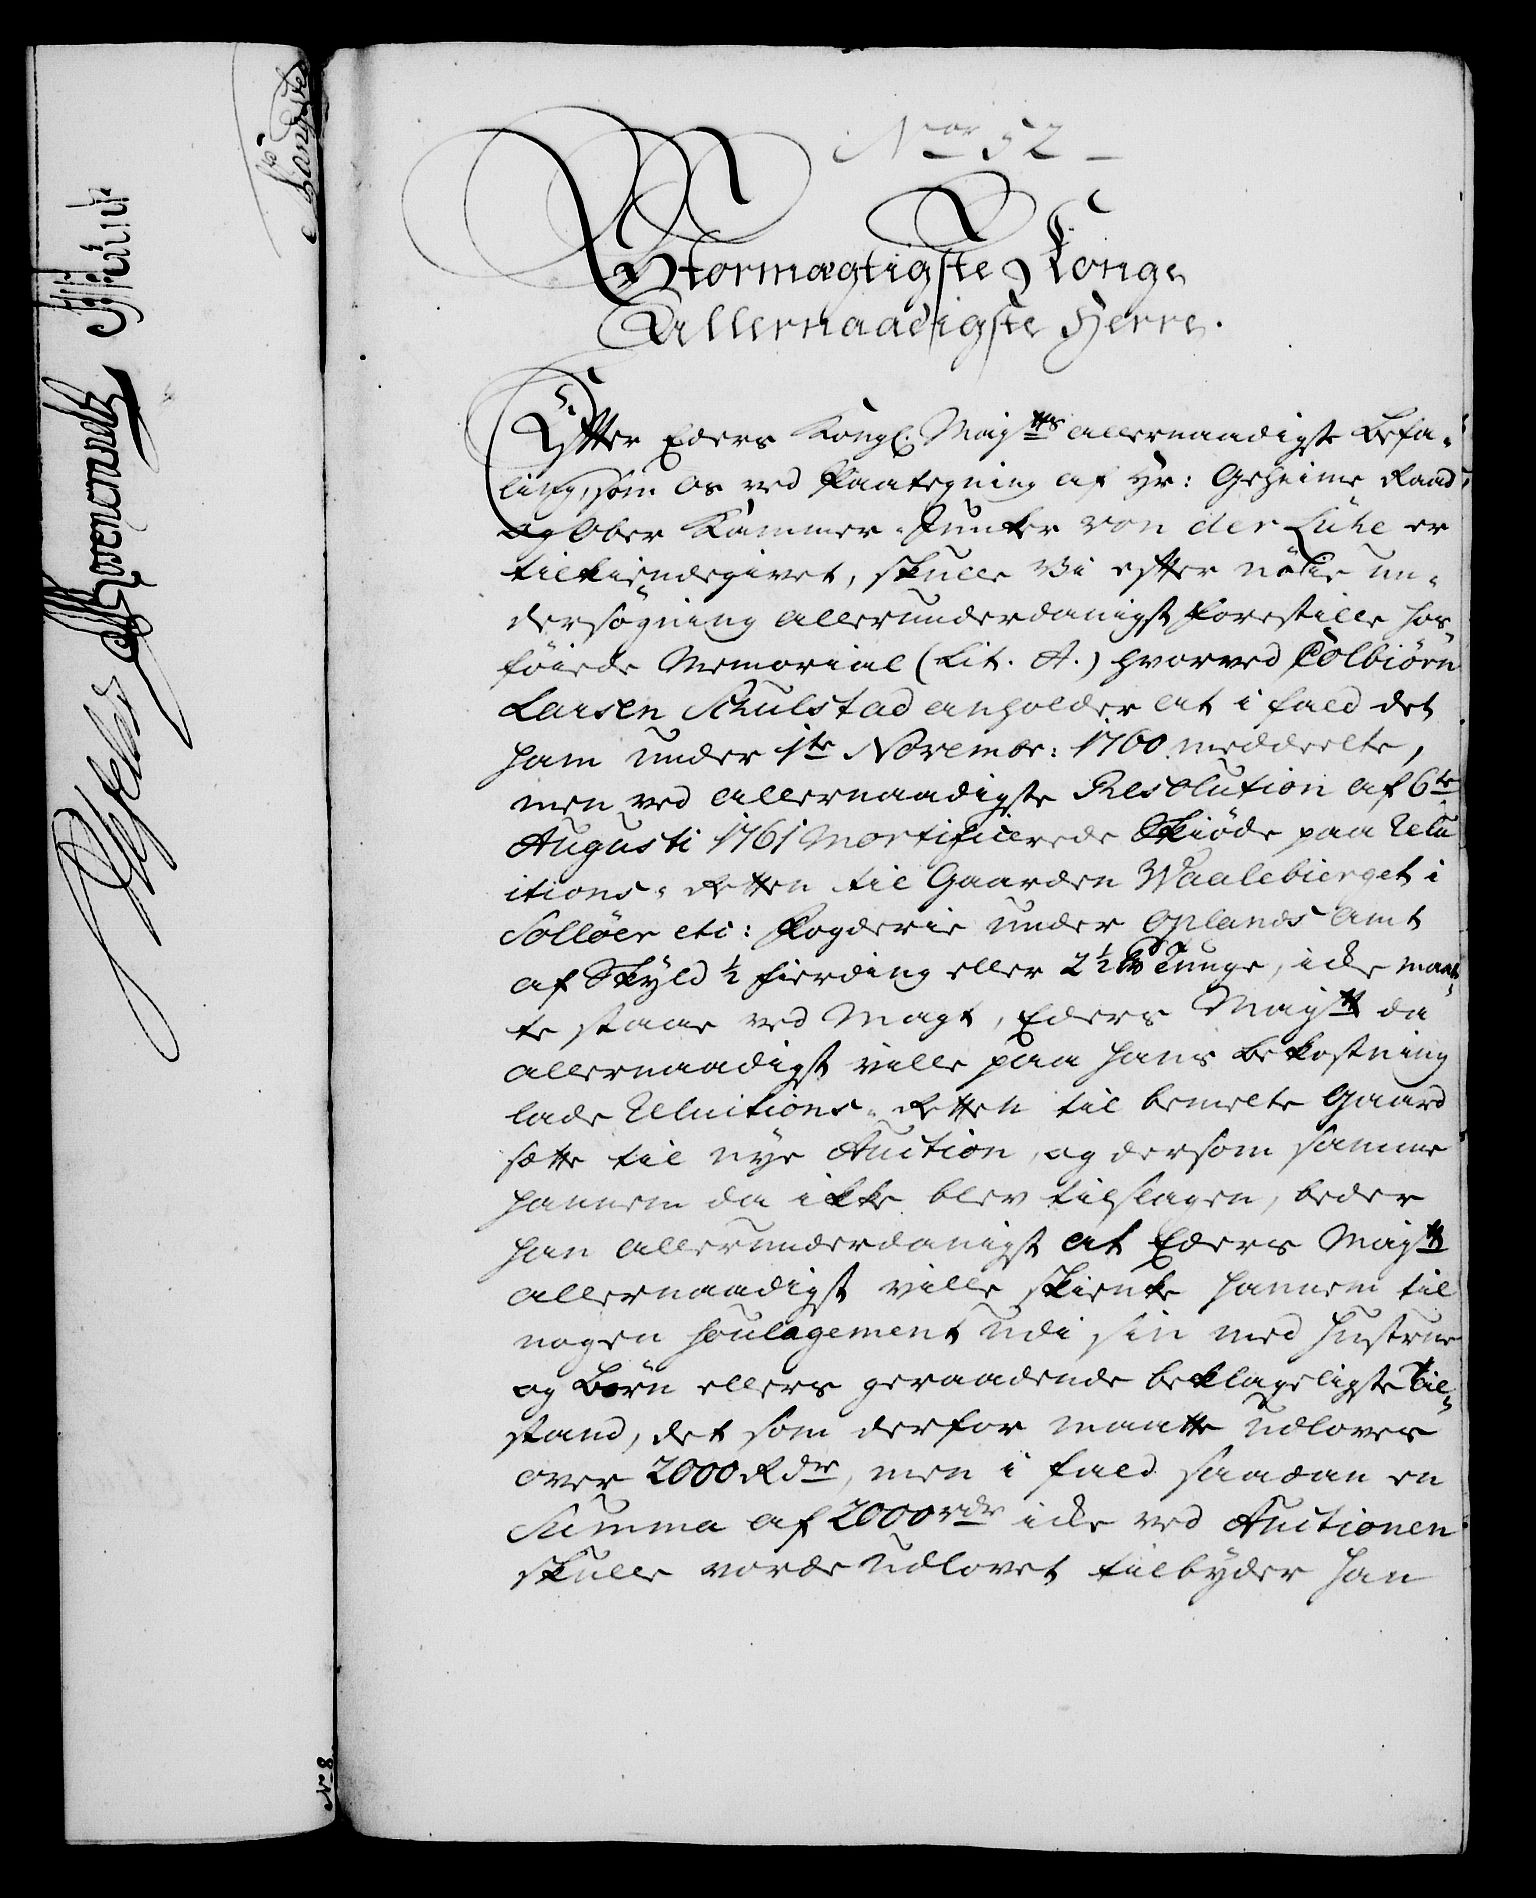 Nor 52
Stormægtigste Konge
Allernaadigste Herre.
Efter Eders Kongl. Maytts allernaadigste Befa-
ling, som os ved Paategning af Hr: Geheime Raad
og Ober Kammer-Junker von der Lühe er
tilkiendegivet, skulle Vi efter nöÿe un-
dersögning allerunderdanigst forestille hos-
föiede Memorial (Lit. A.) hvorved Colbiörn
Larsen Schulstad anholder at i fald det
ham under 1te Novembr: 1760 meddeelte,
men ved allernaadigste Resolution af 6te
Augusti 1761 Mortificerede Skiöde paa Relu
itions-Retten til Gaarden Waalebierget i
Sollöer etc: Fogderie under Oplands Amt
af Skyld 1/2 fierding eller 2 1/2 Tunge, icke maat-
te staae ved Magt, Eders Maytt da
allernaadigst ville paa hans bekostning
lade Reluitions-Retten til bemelte Gaard
sætte til nye Auction, og dersom samme
hannem da ikke blev tilslagen, beder
han allerunderdanigst at Eders Maytt
allernaadigst ville skienke hannem til
nogen soulagement udi sin med Hustrue
og Börn ellers geraadende beklageligste Til-
stand, det som derfor maatte udloves
over 2000 Rdr, men i fald saadan en
Summa af 2000 rdr icke ved Auctionen
skulle vorde udlovet tilbÿder han
No 8